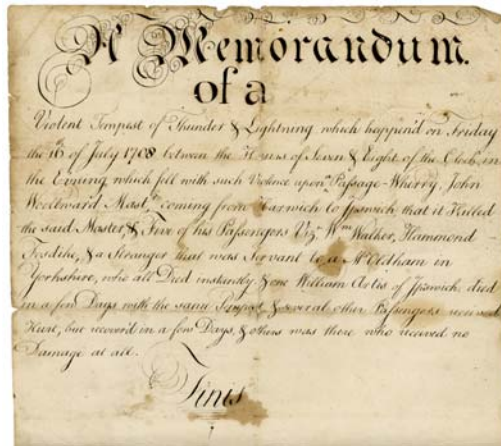 A Memorandum.
of a
Violent Tempest of Thunder & Lightning which happen'd on Friday
the 16th of July 1708 between the Hours of Seven & Eight of the Clock, in
the Evning which fell with such Violence upon Passage-Wherry, John
Woollward Mastr. coming from Harwich to Ipswich that it Killed
the said Master & Five of his Passengers Vizt. Wm. Walker, Hammond
Fosdike, & a Stranger that was Servant to a Mr. Oldham in
Yorkshire, who all Died instantly & one William Artis of Ipswich, died
in a few Days with the same Tempest & several other Passengers received
Hurt, but recover'd in a few Days, & others was there who received no
Damage at all.
Finis